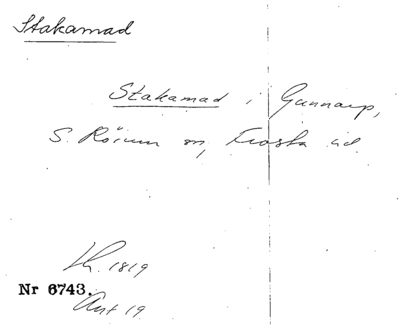 Stakamad
Stakamad i Gunnarp,
S. Rörum sn, Frosta hd
Lh. 1819
Nr 6743.
Ant 19